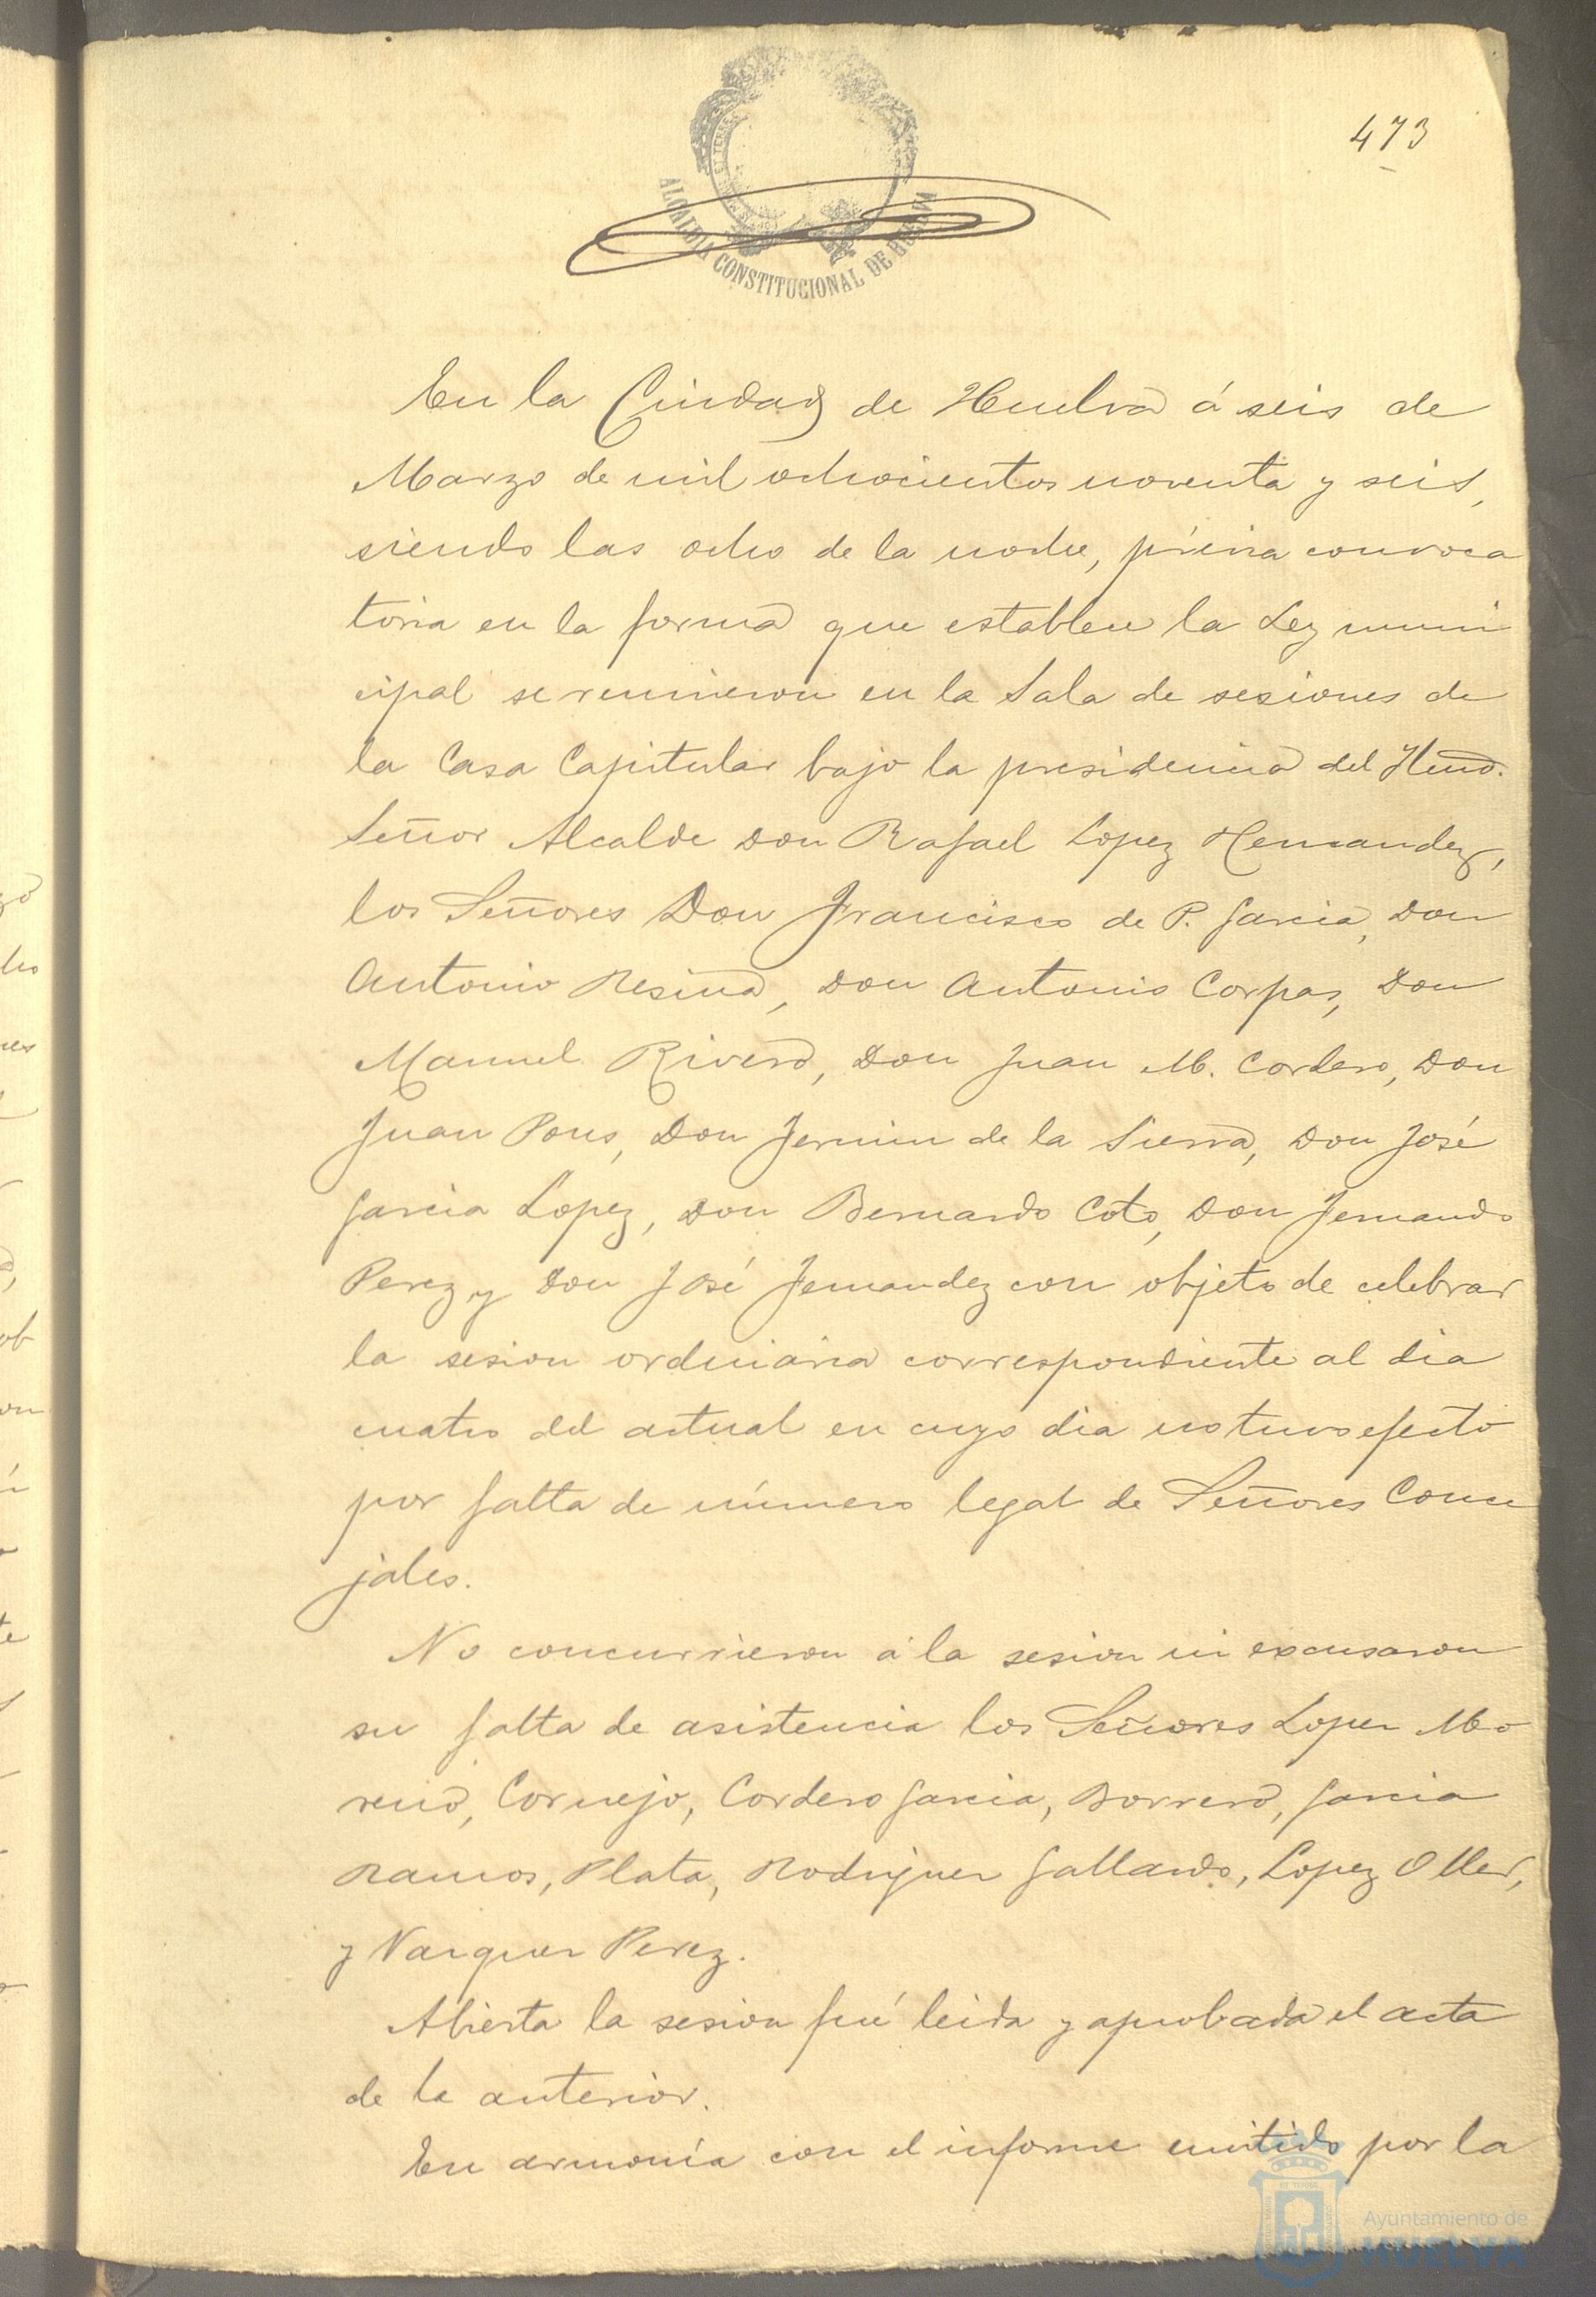 473
ALCALDIA CONSTITUCIONAL DE HUELVA
En la Ciudad de Huelva á seis de
Marzo de mil ochocientos noventa y seis,
siendo las ocho de la noche, prévia convoca
toria en la forma que establece la Ley muni
cipal se reunieron en la Sala de sesiones de
la Casa Capitular bajo la presidencia del Iltmo.
Señor Alcalde Don Rafael Lopez Hernandez,
los Señores Don Francisco de P. Garcia, Don
Antonio Resina, Don Antonio Corpas, Don
Manuel Rivero, Don Juan M. Cordero, Don
Juan Pons, Don Fermin de la Sierra, Don José
Garcia Lopez, Don Bernardo Coto, Don Fernando
Perez y Don José Fernandez con objeto de celebrar
la sesion ordinaria correspondiente al dia
cuatro del actual en cuyo dia no tuvo efecto
por falta de número legal de Señores Conce
jales.
No concurrieron á la sesion ni excusaron
su falta de asistencia los Señores Lopez Mo
reno, Cornejo, Cordero Garcia, Borrero, Garcia
Ramos, Plata, Rodriguez Gallardo, Lopez Oller,
y Vazquez Perez.
Abierta la sesion fué leida y aprobada el acta
de la anterior.
En armonía con el informe emitido por la
Ayuntamiento de
HUELVA